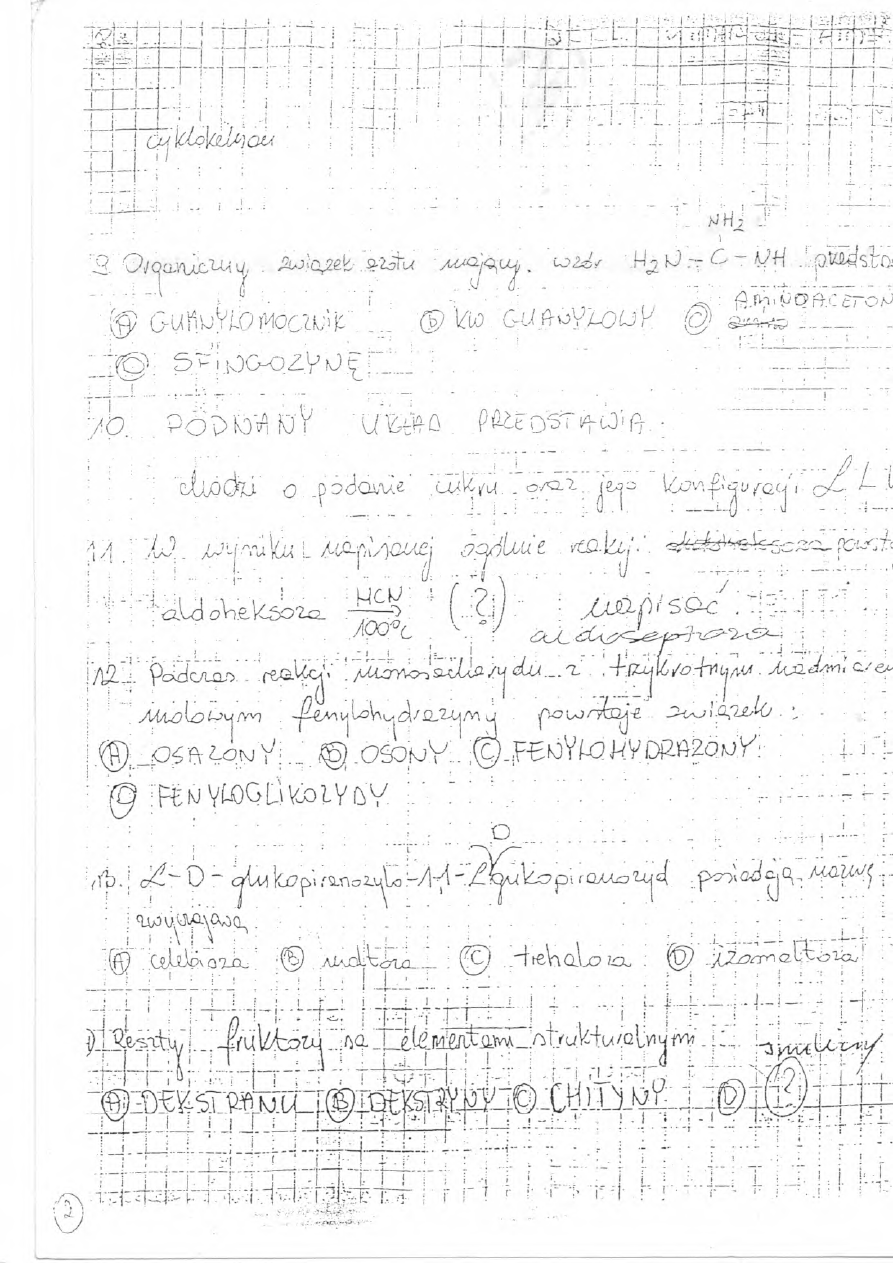 cykloheksan
NH2
9 Organiczny związek azotu mający wzór H2N - C - NH przedsta
(A) GUANYLOMOCZNIK (B) KW GUANYLOWY (C) AMINOACETON
(D) SFINGOZYNĘ
10. PODNANY UKŁAD PRZEDSTAWIA
chodzi o podanie cukru oraz jego konfiguracji L L
11. W wyniku napisanej ogólnie reakcji powsta
aldoheksoza HCN 100°C (?) napisać
aldoseptoza
12. Podczas reakcji monosacharydu z trzykrotnym nadmiarem
molowym fenylohydrazyny powstaje związek :
(A) OSAZONY (B) OSONY (C) FENYLOHYDRAZONY
(D) FENYLOGLIKOZYDY
D
13. L-D-glukopiranozylo-1,1-L glukopiranozyd posiadają nazwę
zwyczajową
(A) celobioza (B) maltoza (C) trehaloza (D) izomaltoza
1) Reszty fruktozy są elementami strukturalnym inuliny
(A) DEKSTRANU (B) DEKSTRYNY (C) CHITYNY (D) (?)
2